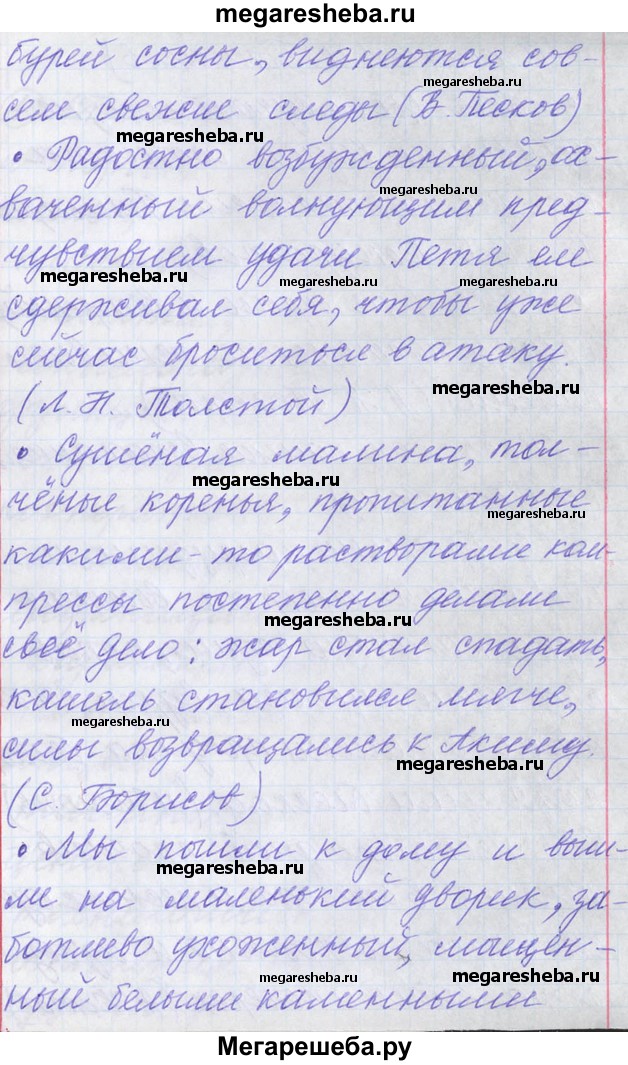 megaresheba.ru
бурей сосны, виднеются сов-
megaresheba.ru
сем свежие следы (В. Песков)
megaresheba.ru
• Радостно возбужденный, ох-
megaresheba.ru
ваченный волнующим пред-
чувствием удачи Петя еле
megaresheba.ru
megaresheba.ru
сдерживал себя, чтобы уже
сейчас броситься в атаку.
megaresheba.ru
(Л. Н. Толстой)
• Сушёная малина, тол-
megaresheba.ru
чёные коренья, пропитанные
megaresheba.ru
какими-то растворами ком-
прессы постепенно делали
megaresheba.ru
своё дело: жар стал спадать,
кашель становился мягче,
megaresheba.ru
силы возвращались к Акиму.
megaresheba.ru
(С. Борисов)
• Мы пошли к дому и выш-
megaresheba.ru
ли на маленький дворик, за-
ботливо ухоженный, мощён-
megaresheba.ru
megaresheba.ru
ный белыми каменными
Мегарешеба.ру